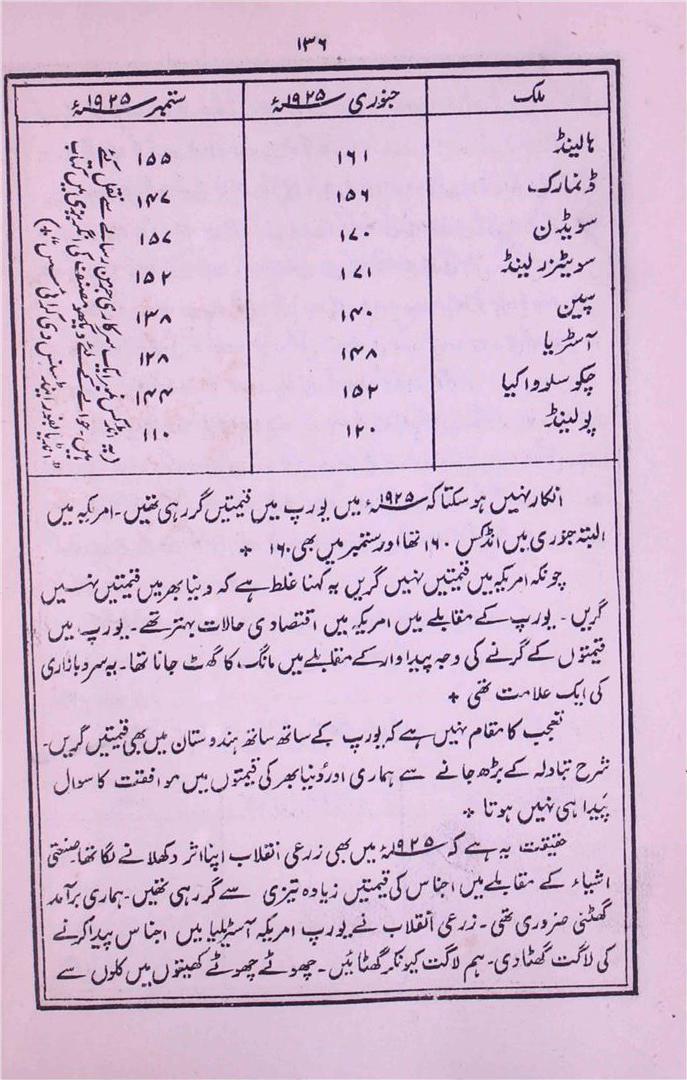 ۱۳۶
ملک جنوری ۱۹۲۵ء ستمبر ۱۹۲۵ء
ہالینڈ ۱۶۱ ۱۵۵
ڈنمارک ۱۵۶ ۱۴۷
سویڈن ۱۷۰ ۱۵۷
سویٹزرلینڈ ۱۷۱ ۱۵۲
سپین ۱۴۰ ۱۳۸
آسٹریا ۱۴۸ ۱۲۸
چکوسلوواکیا ۱۵۲ ۱۴۴
پولینڈ ۱۲۰ ۱۱۰
(یہ انڈکس نمبر ایک سرکاری جرمن رسالے سے نقل کئے
ہیں۔ حوالے کے لئے دیکھو مصنف کی انگریزی میں کتاب
"انڈیا انڈر دی کرائسس")
انکار نہیں ہو سکتا کہ ۱۹۲۵ء میں یورپ میں قیمتیں گر رہی تھیں۔ امریکہ میں
البتہ جنوری میں انڈکس ۱۶۰ تھا اور ستمبر میں بھی ۱۶۰ +
چونکہ امریکہ میں قیمتیں نہیں گریں یہ کہنا غلط ہے کہ دنیا بھر میں قیمتیں نہیں
گریں۔ یورپ کے مقابلے میں امریکہ میں اقتصادی حالات بہتر تھے۔ یورپ میں
قیمتوں کے گرنے کی وجہ پیداوار کے مقابلے میں مانگ کا گھٹ جانا تھا۔ یہ سرد بازاری
کی ایک علامت تھی +
تعجب کا مقام نہیں ہے کہ یورپ کے ساتھ ساتھ ہندوستان میں بھی قیمتیں گریں۔
شرح تبادلہ کے بڑھ جانے سے ہماری اور دُنیا بھر کی قیمتوں میں موافقت کا سوال
پَیدا ہی نہیں ہوتا +
حقیقت یہ ہے کہ ۱۹۲۵ء میں بھی زرعی انقلاب اپنا اثر دکھلانے لگا تھا۔ صنعتی
اشیاء کے مقابلے میں اجناس کی قیمتیں زیادہ تیزی سے گر رہی تھیں۔ ہماری برآمد
گھٹنی ضروری تھی۔ زرعی انقلاب نے یورپ امریکہ آسٹریلیا میں اجناس پیدا کرنے
کی لاگت گھٹا دی۔ ہم لاگت کیونکر گھٹائیں۔ چھوٹے چھوٹے کھیتوں میں کلوں سے